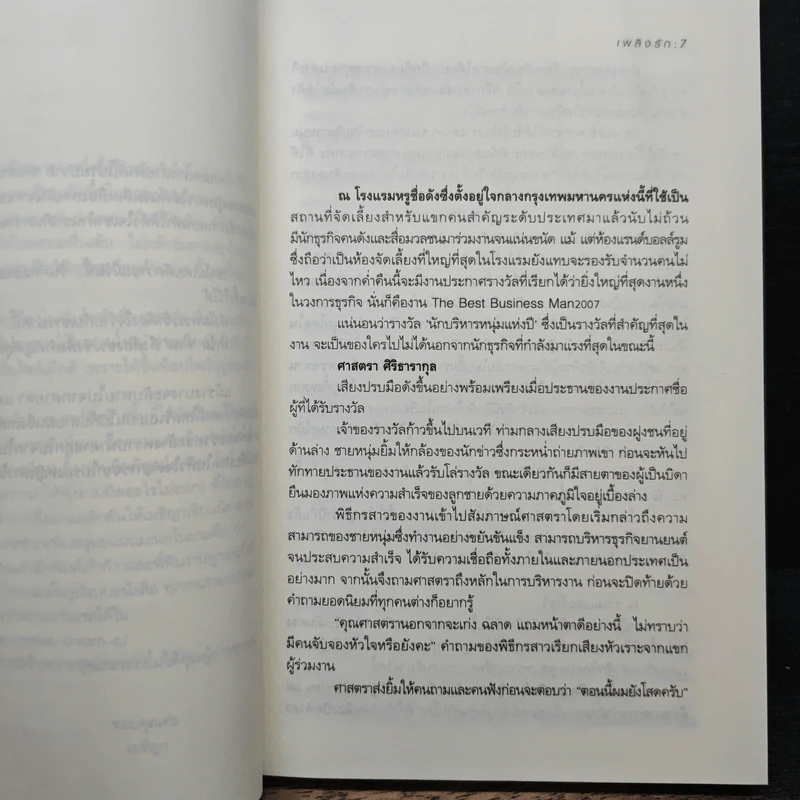 เพลิงรัก : 7
ณ โรงแรมหรูชื่อดังซึ่งตั้งอยู่ใจกลางกรุงเทพมหานครแห่งนี้ที่ใช้เป็น
สถานที่จัดเลี้ยงสำหรับแขกคนสำคัญระดับประเทศมาแล้วนับไม่ถ้วน
มีนักธุรกิจคนดังและสื่อมวลชนมาร่วมงานจนแน่นขนัด แม้ แต่ห้องแรนด์บอลล์รูม
ซึ่งถือว่าเป็นห้องจัดเลี้ยงที่ใหญ่ที่สุดในโรงแรมยังแทบจะรองรับจำนวนคนไม่
ไหว เนื่องจากค่ำคืนนี้จะมีงานประกาศรางวัลที่เรียกได้ว่ายิ่งใหญ่ที่สุดงานหนึ่ง
ในวงการธุรกิจ นั่นก็คืองาน The Best Business Man2007
แน่นอนว่ารางวัล 'นักบริหารหนุ่มแห่งปี' ซึ่งเป็นรางวัลที่สำคัญที่สุดใน
งาน จะเป็นของใครไปไม่ได้นอกจากนักธุรกิจที่กำลังมาแรงที่สุดในขณะนี้
ศาสตรา ศิริธารากุล
เสียงปรบมือดังขึ้นอย่างพร้อมเพรียงเมื่อประธานของงานประกาศชื่อ
ผู้ที่ได้รับรางวัล
เจ้าของรางวัลก้าวขึ้นไปบนเวที ท่ามกลางเสียงปรบมือของฝูงชนที่อยู่
ด้านล่าง ชายหนุ่มยิ้มให้กล้องของนักข่าวซึ่งกระหน่ำถ่ายภาพเขา ก่อนจะหันไป
ทักทายประธานของงานแล้วรับโล่รางวัล ขณะเดียวกันก็มีสายตาของผู้เป็นบิดา
ยืนมองภาพแห่งความสำเร็จของลูกชายด้วยความภาคภูมิใจอยู่เบื้องล่าง
พิธีกรสาวของงานเข้าไปสัมภาษณ์ศาสตราโดยเริ่มกล่าวถึงความ
สามารถของชายหนุ่มซึ่งทำงานอย่างขยันขันแข็ง สามารถบริหารธุรกิจยานยนต์
จนประสบความสำเร็จ ได้รับความเชื่อถือทั้งภายในและภายนอกประเทศเป็น
อย่างมาก จากนั้นจึงถามศาสตราถึงหลักในการบริหารงาน ก่อนจะปิดท้ายด้วย
คำถามยอดนิยมที่ทุกคนต่างก็อยากรู้
"คุณศาสตรานอกจากจะเก่ง ฉลาด แถมหน้าตาดีอย่างนี้ ไม่ทราบว่า
มีคนจับจองหัวใจหรือยังคะ" คำถามของพิธีกรสาวเรียกเสียงหัวเราะจากแขก
ผู้ร่วมงาน
ศาสตราส่งยิ้มให้คนถามและคนฟังก่อนจะตอบว่า "ตอนนี้ผมยังโสดครับ"